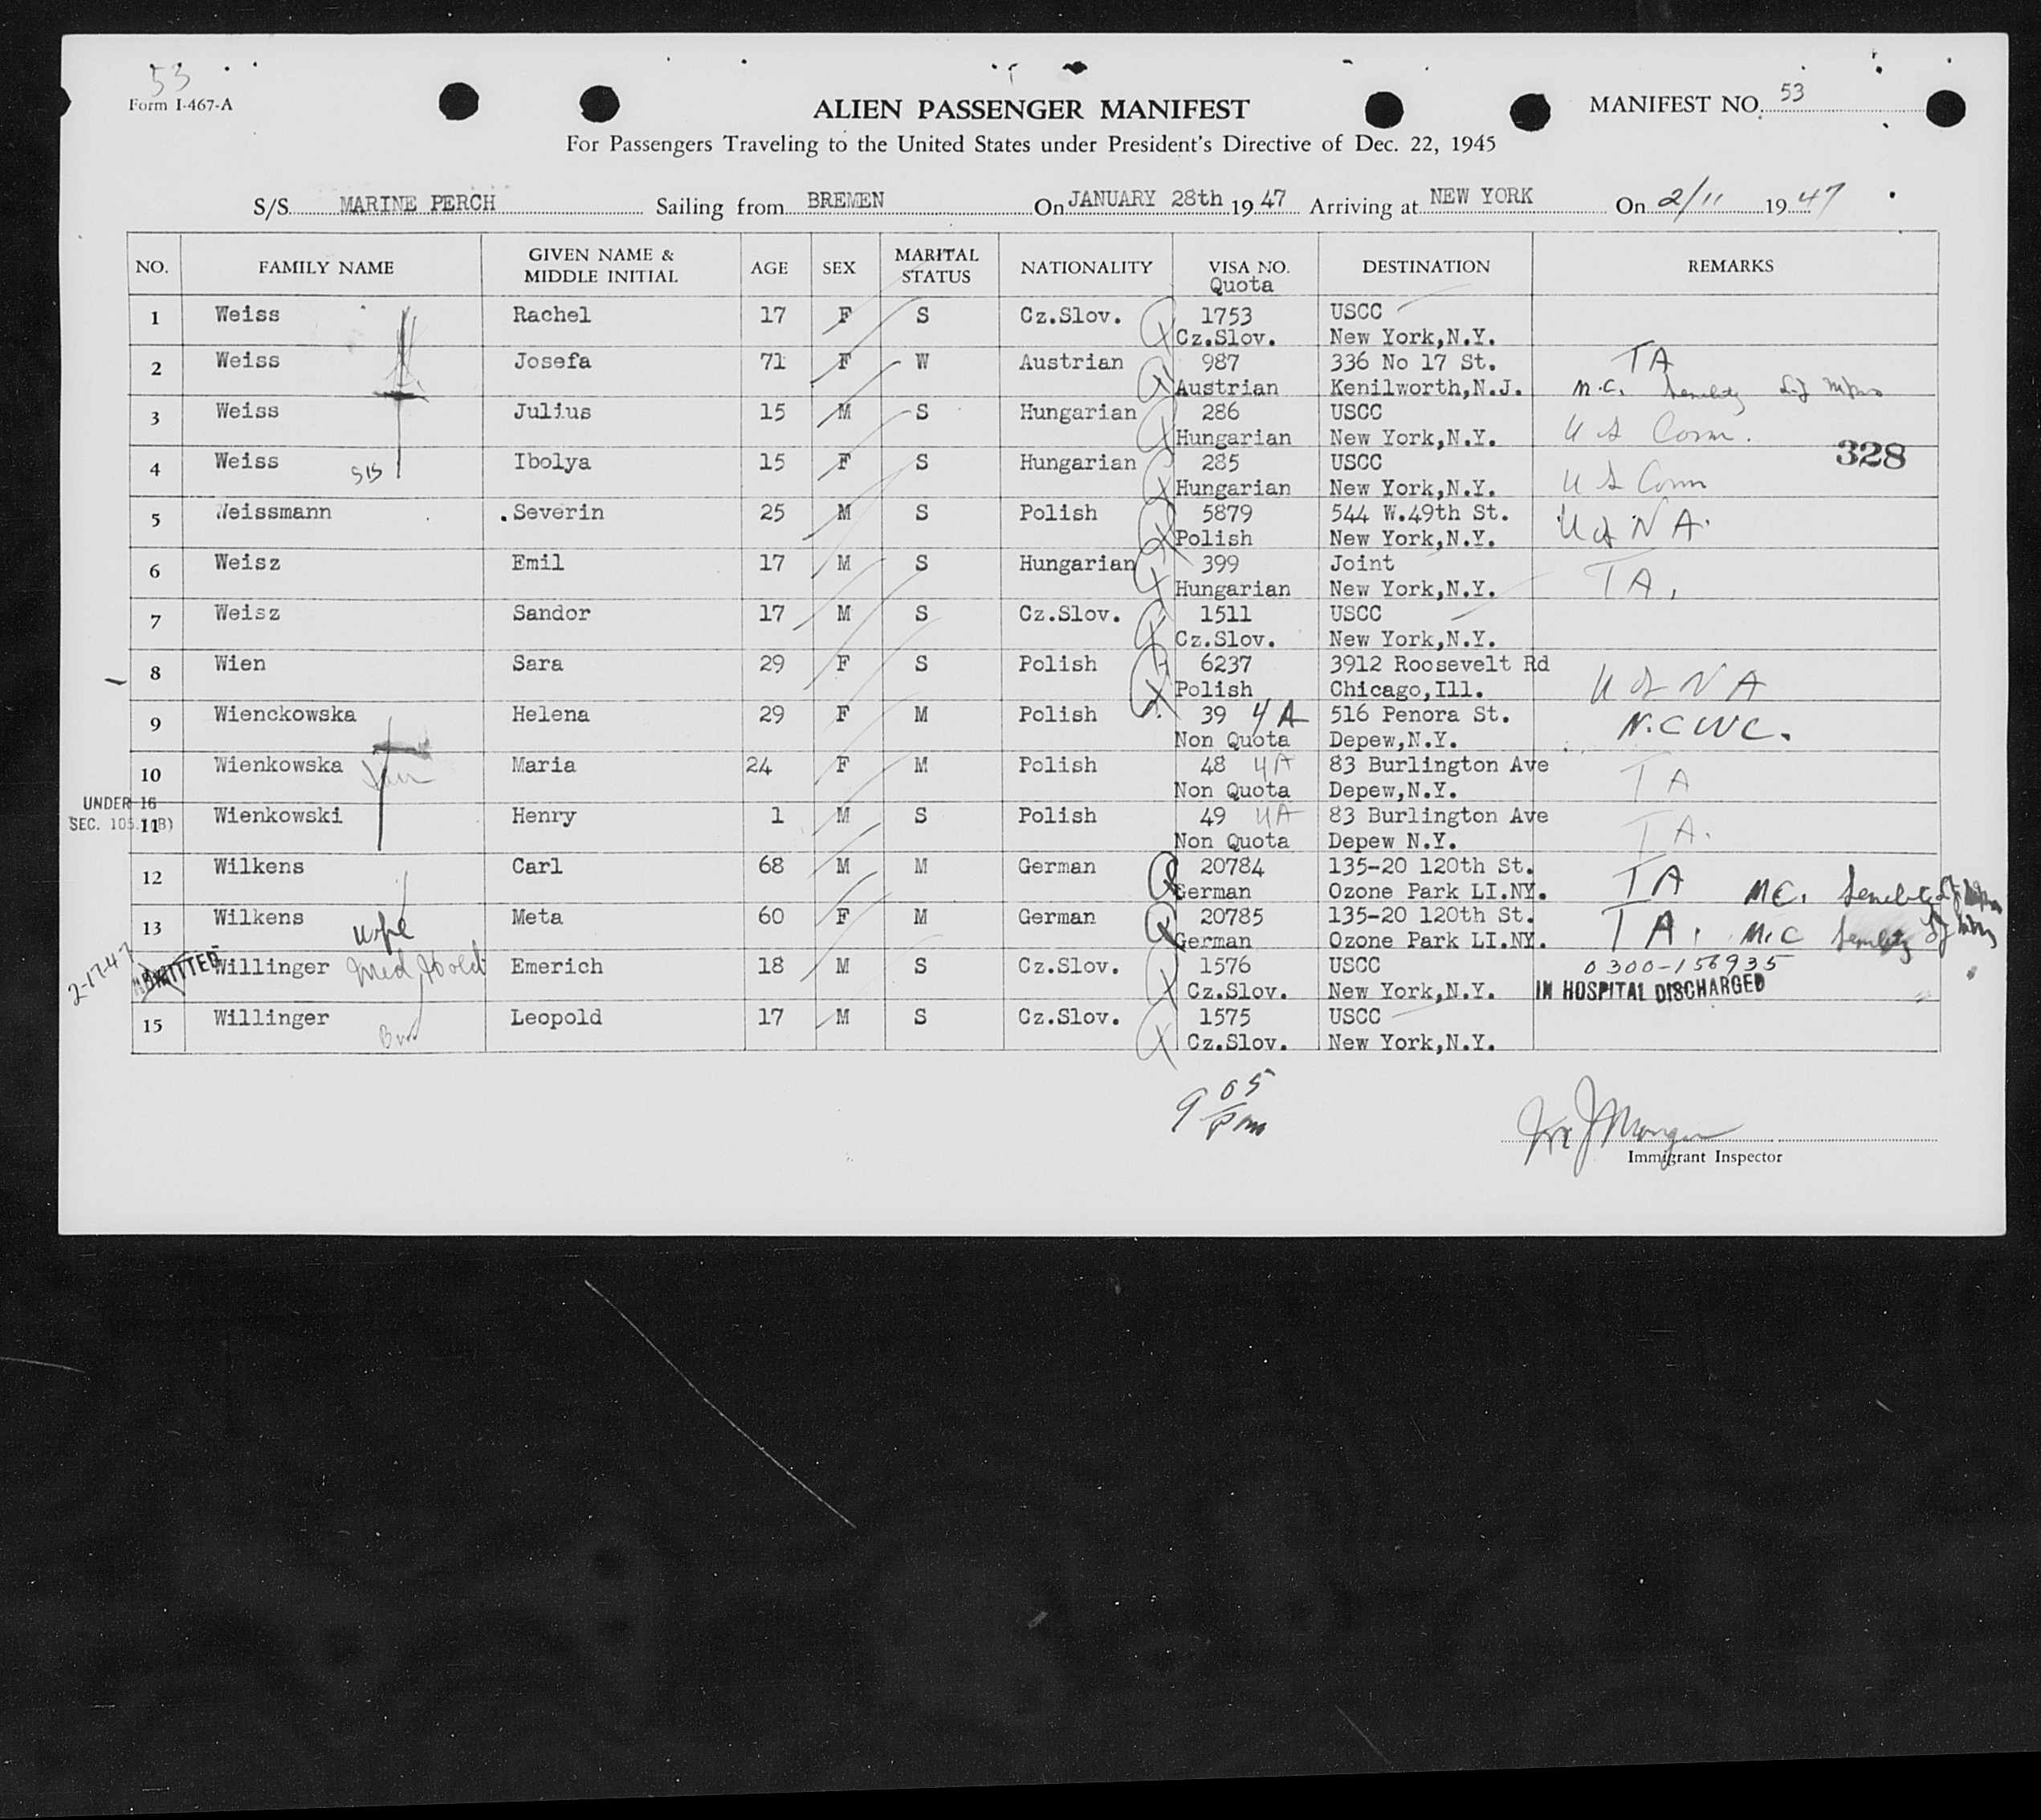 53
Form I-467-A
ALIEN PASSENGER MANIFEST
MANIFEST NO. 53
For Passengers Traveling to the United States under President's Directive of Dec. 22, 1945
S/S MARINE PERCH Sailing from BREMEN On JANUARY 28th 19 47 Arriving at NEW YORK On 2/11 19 47
NO. FAMILY NAME GIVEN NAME & MIDDLE INITIAL AGE SEX MARITAL STATUS NATIONALITY VISA NO. Quota DESTINATION REMARKS
1 Weiss Rachel 17 F S Cz.Slov. 1753 USCC
Cz.Slov. New York,N.Y.
2 Weiss Josefa 71 F W Austrian 987 336 No 17 St. TA
Austrian Kenilworth,N.J. M.C. Senility
3 Weiss Julius 15 M S Hungarian 286 USCC
Hungarian New York,N.Y. U S Comm.
328
4 Weiss sis Ibolya 15 F S Hungarian 285 USCC
Hungarian New York,N.Y. U S Comm
5 Weissmann Severin 25 M S Polish 5879 544 W.49th St.
Polish New York,N.Y. U S N A.
6 Weisz Emil 17 M S Hungarian 399 Joint
Hungarian New York,N.Y. TA.
7 Weisz Sandor 17 M S Cz.Slov. 1511 USCC
Cz.Slov. New York,N.Y.
8 Wien Sara 29 F S Polish 6237 3912 Roosevelt Rd
Polish Chicago,Ill. U S N A
9 Wienckowska Helena 29 F M Polish 39 4A 516 Penora St. N.C.W.C.
Non Quota Depew,N.Y.
10 Wienkowska Maria 24 F M Polish 48 4A 83 Burlington Ave
Non Quota Depew,N.Y. TA
UNDER 16
SEC. 105.1(B)
11 Wienkowski Henry 1 M S Polish 49 4A 83 Burlington Ave
Non Quota Depew N.Y. TA.
12 Wilkens Carl 68 M M German Q 20784 135-20 120th St.
German Ozone Park LI.NY. TA MC. Senility
13 Wilkens wife Meta 60 F M German Q 20785 135-20 120th St.
German Ozone Park LI.NY. TA. M.C Senility
2-17-47 ADMITTED Willinger Med Hold Emerich 18 M S Cz.Slov. 1576 USCC 0300-156935
Cz.Slov. New York,N.Y. IN HOSPITAL DISCHARGED
15 Willinger Bro Leopold 17 M S Cz.Slov. 1575 USCC
Cz.Slov. New York,N.Y.
9 05 pm
Immigrant Inspector